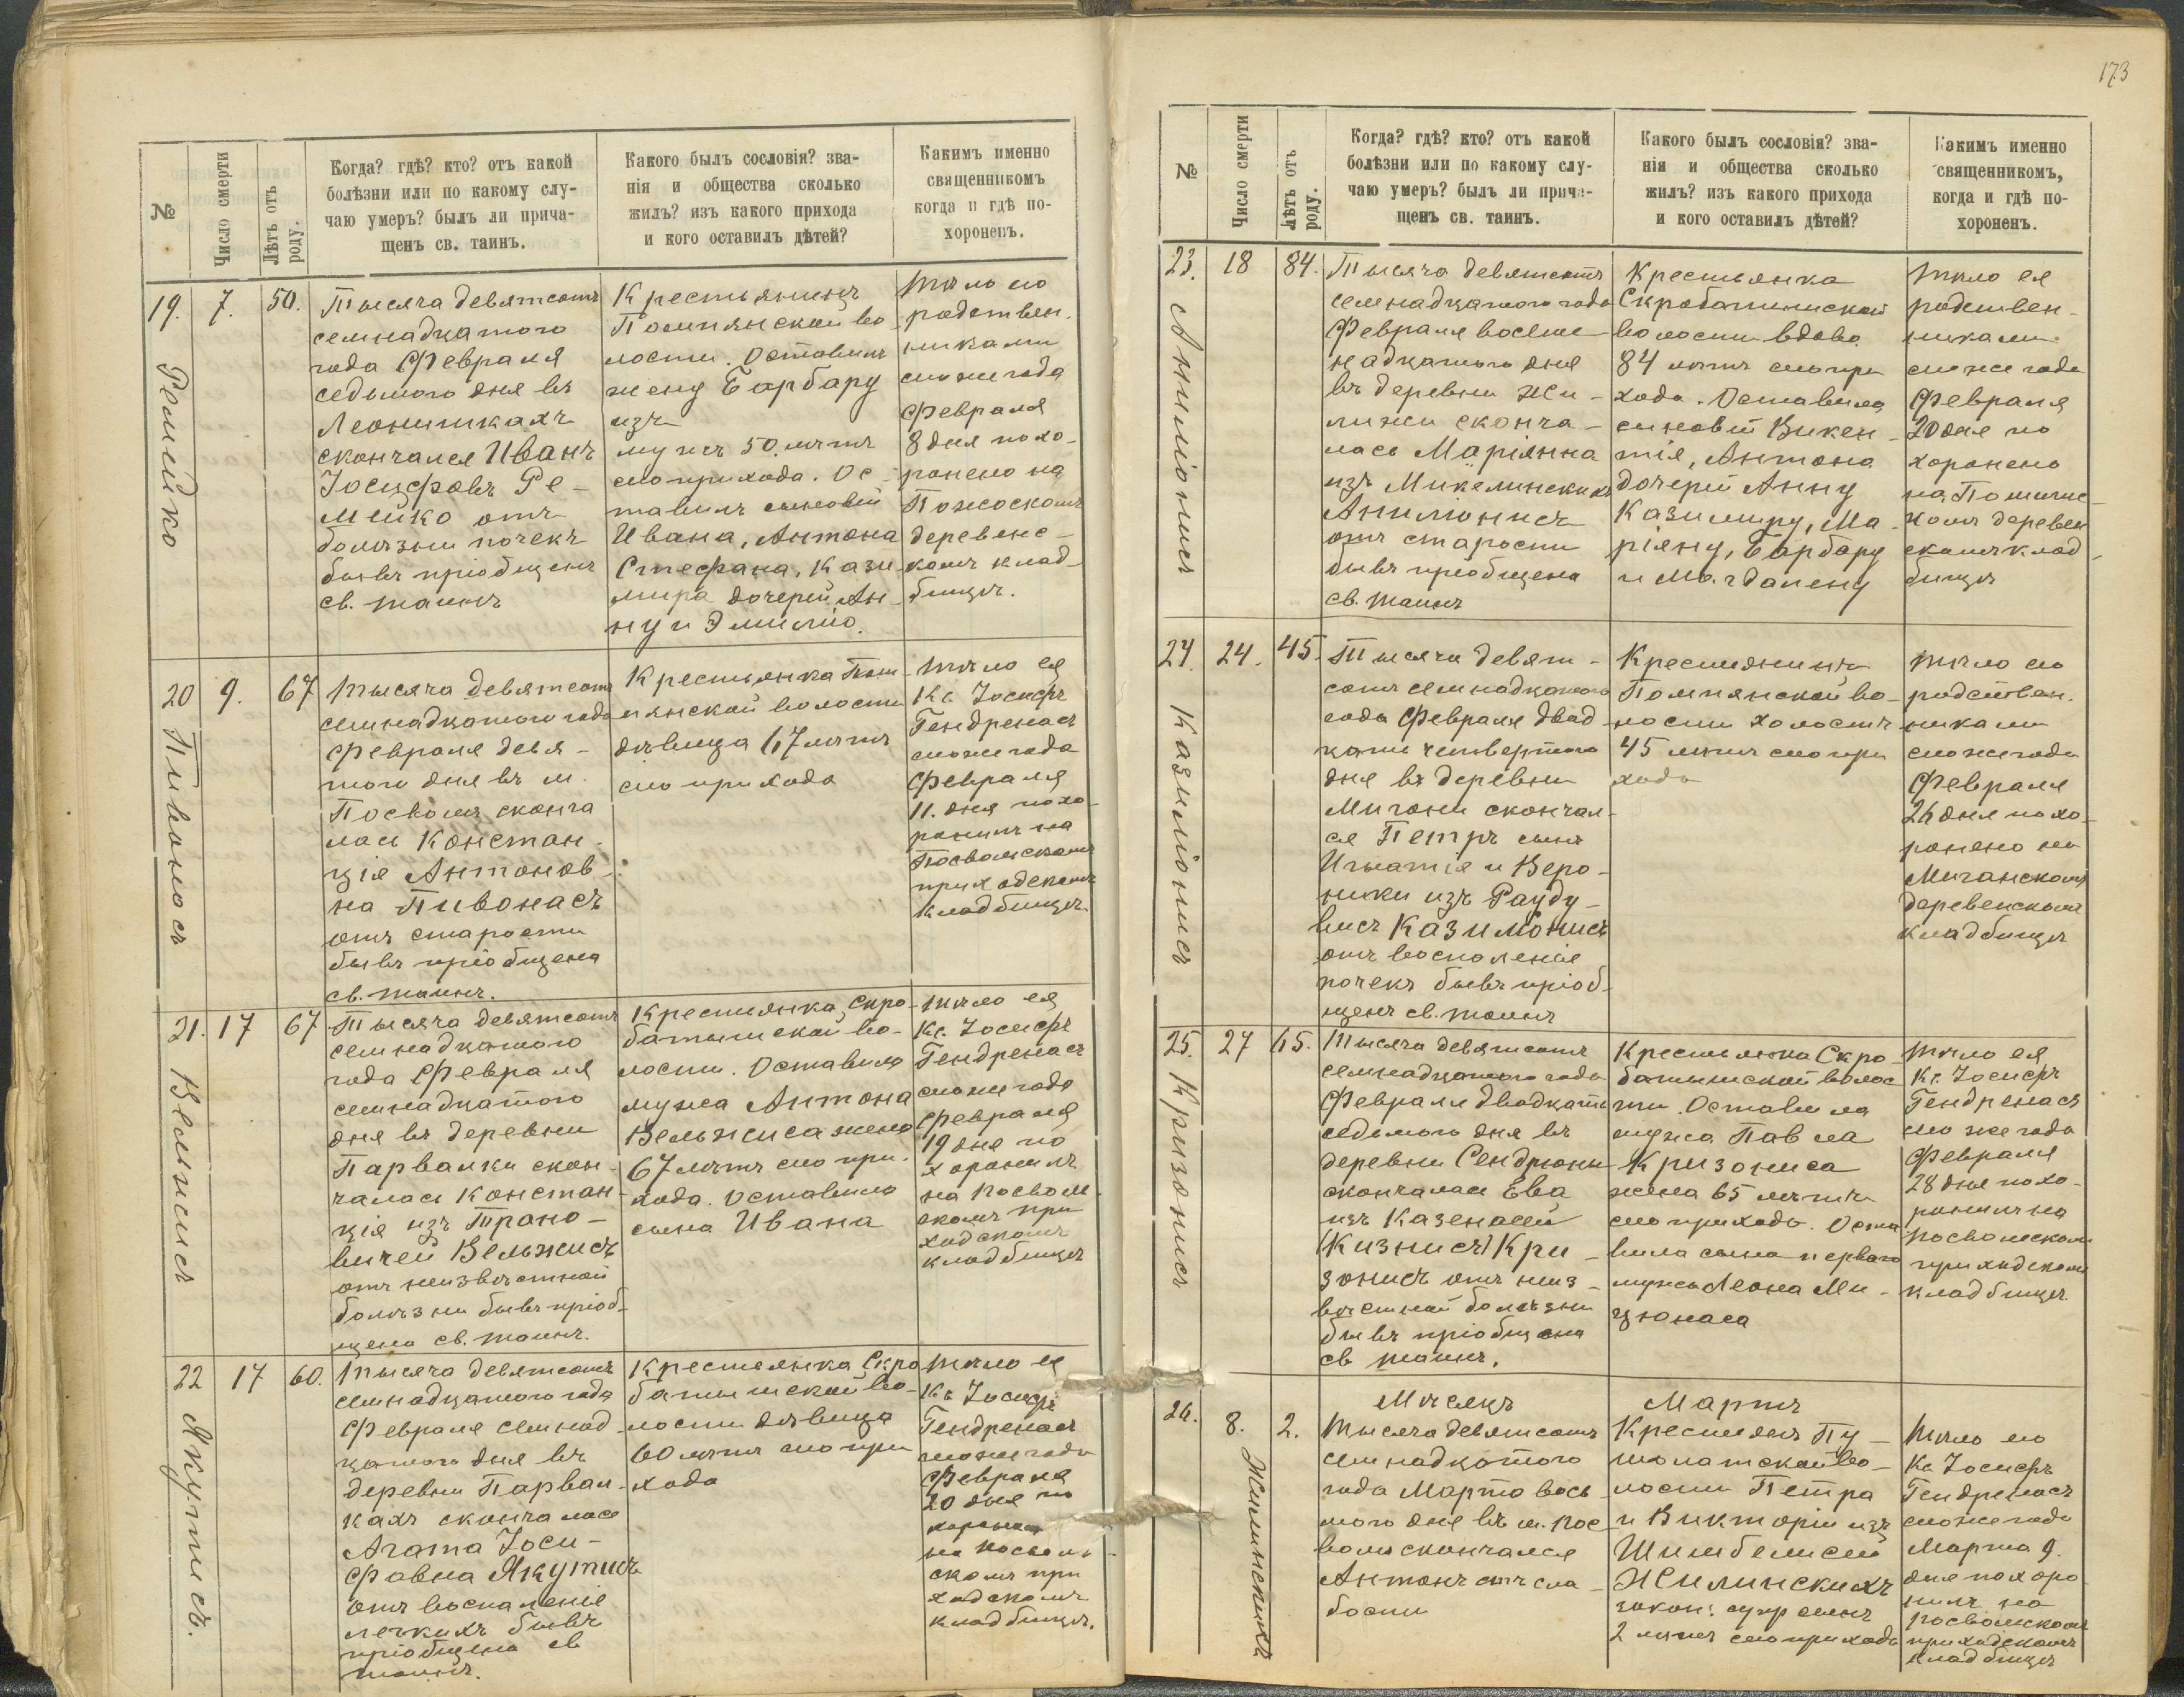 №
Число смерти
Лѣтъ отъ роду.
Когда? гдѣ? кто? отъ какой
болѣзни или по какому слу-
чаю умеръ? былъ ли прича-
щенъ св. таинъ.
Какого былъ сословія? зва-
нія и общества сколько
жилъ? изъ какого прихода
и кого оставилъ дѣтей?
Какимъ именно
священникомъ
когда и гдѣ по-
хороненъ.
19.
7.
50.
Ремейко
Тысяча девятсотъ
семнадцатого
года Февраля
седьмого дня въ
Леонишкахъ
скончался Иванъ
Іосифовъ Ре-
мейко отъ
болѣзни почекъ
бывъ пріобщенъ
св. таинъ
Крестьянинъ
Помпянской во
лости. Оставилъ
жену Барбару
изъ
мужъ 50. лѣтъ
сего прихода. Ос-
тавилъ сыновей
Ивана, Антона
Стефана, Кази
мира дочерей Ан-
ну и Эмилію.
Тѣло его
родствен.
никами
сегоже года
Февраля
8 дня похо-
ронено на
деревенс-
комъ клад-
бищѣ.
20
9.
67
Пивонасъ
Тысяча девятсотъ
семнадцатого года
Февраля девя-
того дня въ м.
Посволѣ сконча
лась Констан-
ція Антонов-
на Пивонасъ
отъ старости
бывъ пріобщена
св. таинъ.
Крестьянка Пом-
пянской волости
дѣвица 67 лѣтъ
сего прихода
Тѣло ея
Кс. Іосифъ
Гендренасъ
сегоже года
Февраля
11. дня похо-
ронилъ на
Посвольскомъ
приходскомъ
кладбищѣ.
21.
17
67
Вельжисъ
Тысяча девятсотъ
семнадцатого
года Февраля
семнадцатого
дня въ деревни
Парвалки скон-
чалась Констан-
ція изъ Трано-
вичей Вельжисъ
отъ неизвѣстной
болѣзни бывъ пріоб-
щена св. таинъ.
Крестьянка, Скро-
батышской во-
лости. Оставила
мужа Антона
Вельжиса жена
67 лѣтъ сего при-
хода. Оставила
сына Ивана
Тѣло ея
Кс. Іосифъ
Гендренасъ
сегоже года
Февраля
19 дня по
хоронилъ
на Посволь-
скомъ при
ходскомъ
кладбищѣ
22
17
60.
Якутисъ.
Тысяча девятсотъ
семнадцатого года
Февраля семнад-
цатого дня въ
деревни Парвал-
кахъ скончалась
Агата Іоси-
фовна Якутисъ
отъ воспаленія
легкихъ бывъ
пріобщена св
таинъ.
Крестьянка Скро
батышской во-
лости дѣвица
60 лѣтъ сего при
хода
Тѣло ея
Кс Іосифъ
Гендренасъ
сегоже года
Февраля
20 дня по
на Посволь-
скомъ при
ходскомъ
кладбищѣ.
173
№
Число смерти
Лѣтъ отъ роду.
Когда? гдѣ? кто? отъ какой
болѣзни или по какому слу-
чаю умеръ? былъ ли прича-
щенъ св. таинъ.
Какого былъ сословія? зва-
нія и общества сколько
жилъ? изъ какого прихода
и кого оставилъ дѣтей?
Какимъ именно
священникомъ,
когда и гдѣ по-
хороненъ.
23.
18
84.
Анилюнисъ
Тысяча девятсотъ
семнадцатого года
Февраля восем-
надцатого дня
въ деревни Жи-
лижи сконча-
лась Маріянна
изъ Микелинскихъ
Анилюнисъ
отъ старости
бывъ пріобщена
св. таинъ
Крестьянка
Скробатишской
волости вдова
84 лѣтъ сего при
хода. Оставила
сыновей Викен-
тія, Антона
дочерей Анну
Казимиру, Ма-
ріяну, Барбару
и Магдалену
Тѣло ея
родствен-
никами
сегоже года
Февраля
20 дня по
хоронено
комъ деревен
скомъ клад-
бищѣ
24.
24.
45.
Казилюнисъ
Тысяча девят-
сотъ семнадцатого
года Февраля двад-
цать четвертого
дня въ деревни
Мичони скончал-
ся Петръ сынъ
Игнатія и Веро-
ники изъ Рауду-
висъ Казилюнисъ
отъ воспаленія
почекъ бывъ пріоб-
щенъ св. таинъ
Крестьянинъ
Помпянской во-
лости холостъ
45 лѣтъ сего при
хода
Тѣло его
родствен.
никами
сегоже года
Февраля
26 дня похо-
ронено на
Мичанскомъ
деревенскомъ
кладбищѣ
25.
27
65.
Кризонисъ
Тысяча девятсотъ
семнадцатого года
Февраля двадцать
седьмого дня въ
деревни Сендрюны
скончалась Ева
изъ Казенасей
(Кизнисъ) Кри-
зонисъ отъ неиз-
вѣстной болѣзни
бывъ пріобщена
св таинъ.
Крестьянка Скро
батышской волос
ти. Оставила
мужа Павла
Кризониса
жена 65 лѣтъ
сего прихода. Оста
вила сына первого
мужа Леона Ми-
цюнаса
Тѣло ея
Кс. Іосифъ
Гендренасъ
сего же года
Февраля
28 дня похо-
ронилъ на
Посвольскомъ
приходскомъ
кладбищѣ
Мѣсяцъ Мартъ
26.
8.
2.
Жилинскихъ
Тысяча девятсотъ
семнадцатого
года Марта вось
мого дня въ м. Пос
волѣ скончался
Антонъ отъ сла-
бости
Крестьянъ Пу-
шолатской во-
лости Петра
и Викторіи изъ
Шимбелисей
Жилинскихъ
закон: супр сынъ
2 лѣтъ сего прихода
Тѣло его
Кс Іосифъ
Гендренасъ
сегоже года
Марта 9.
дня похоро
нилъ на
Посвольскомъ
приходскомъ
кладбищѣ